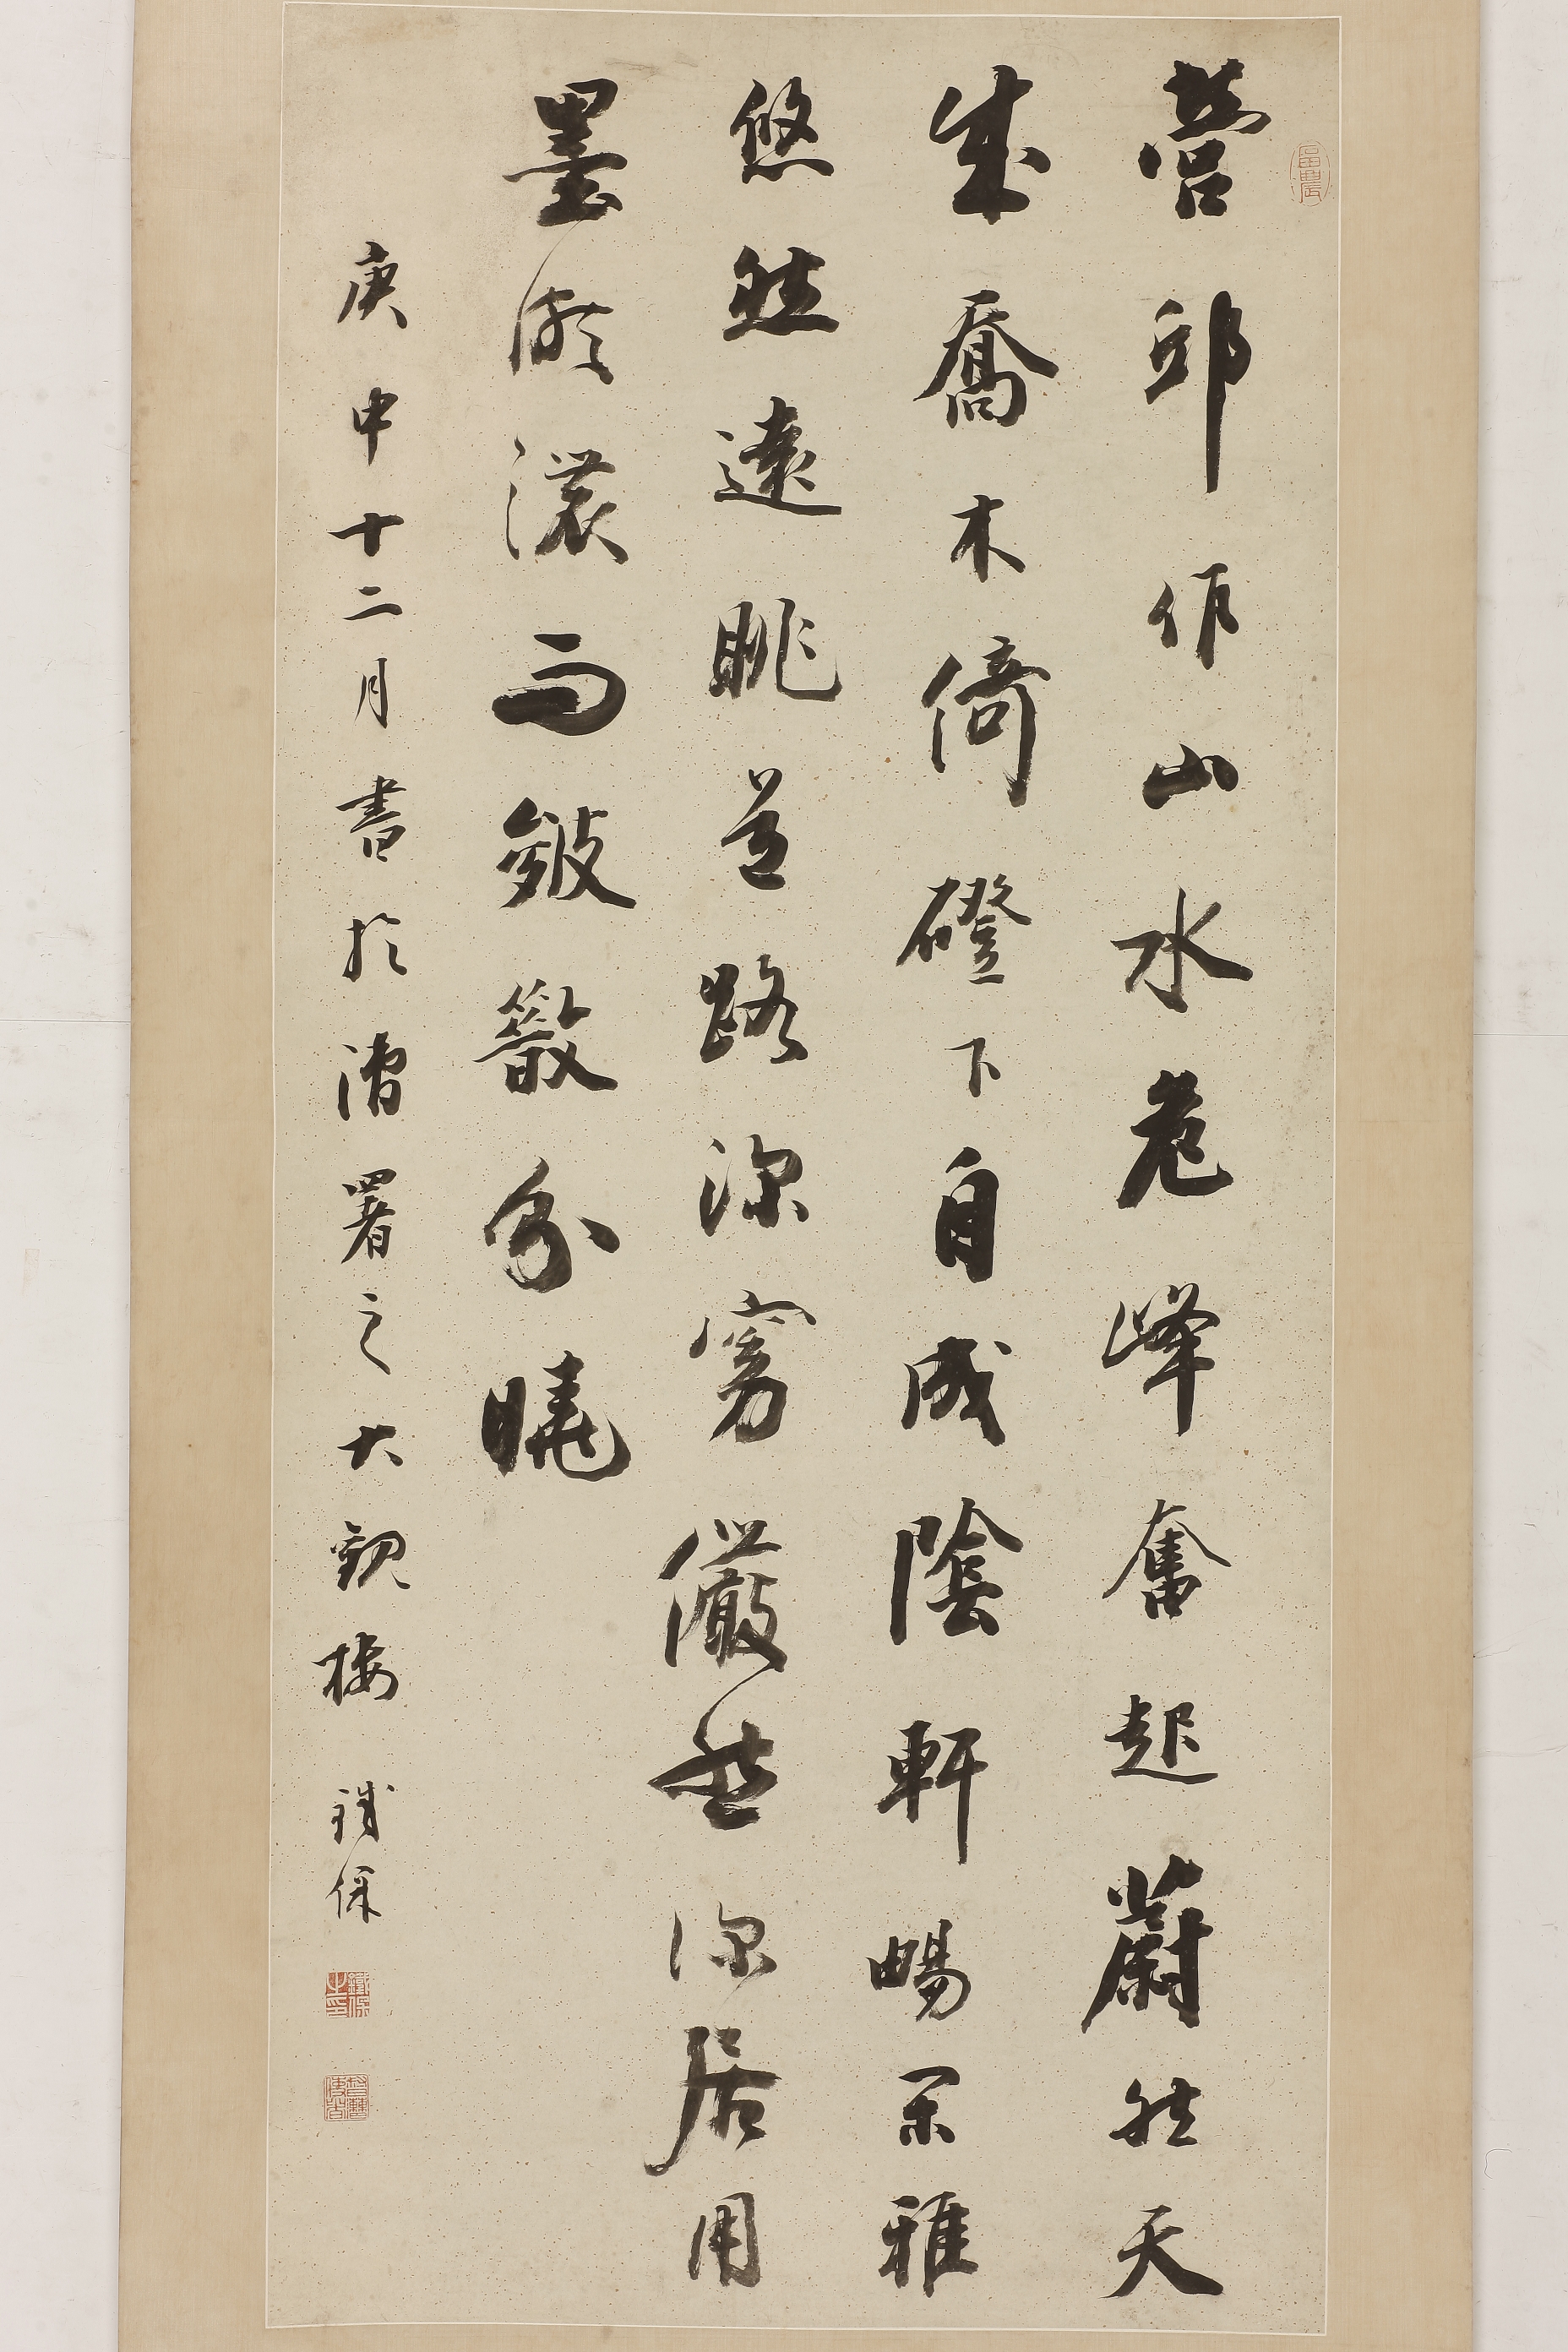 營邱作山水危峰奮起蔚然天
成喬木倚磴下自成陰軒暢閑雅
悠然遠眺道路深窈儼然深居用
墨頗濃而皴散分曉
庚申十二月書於漕署之大觀樓 鐵保
鐵保之印